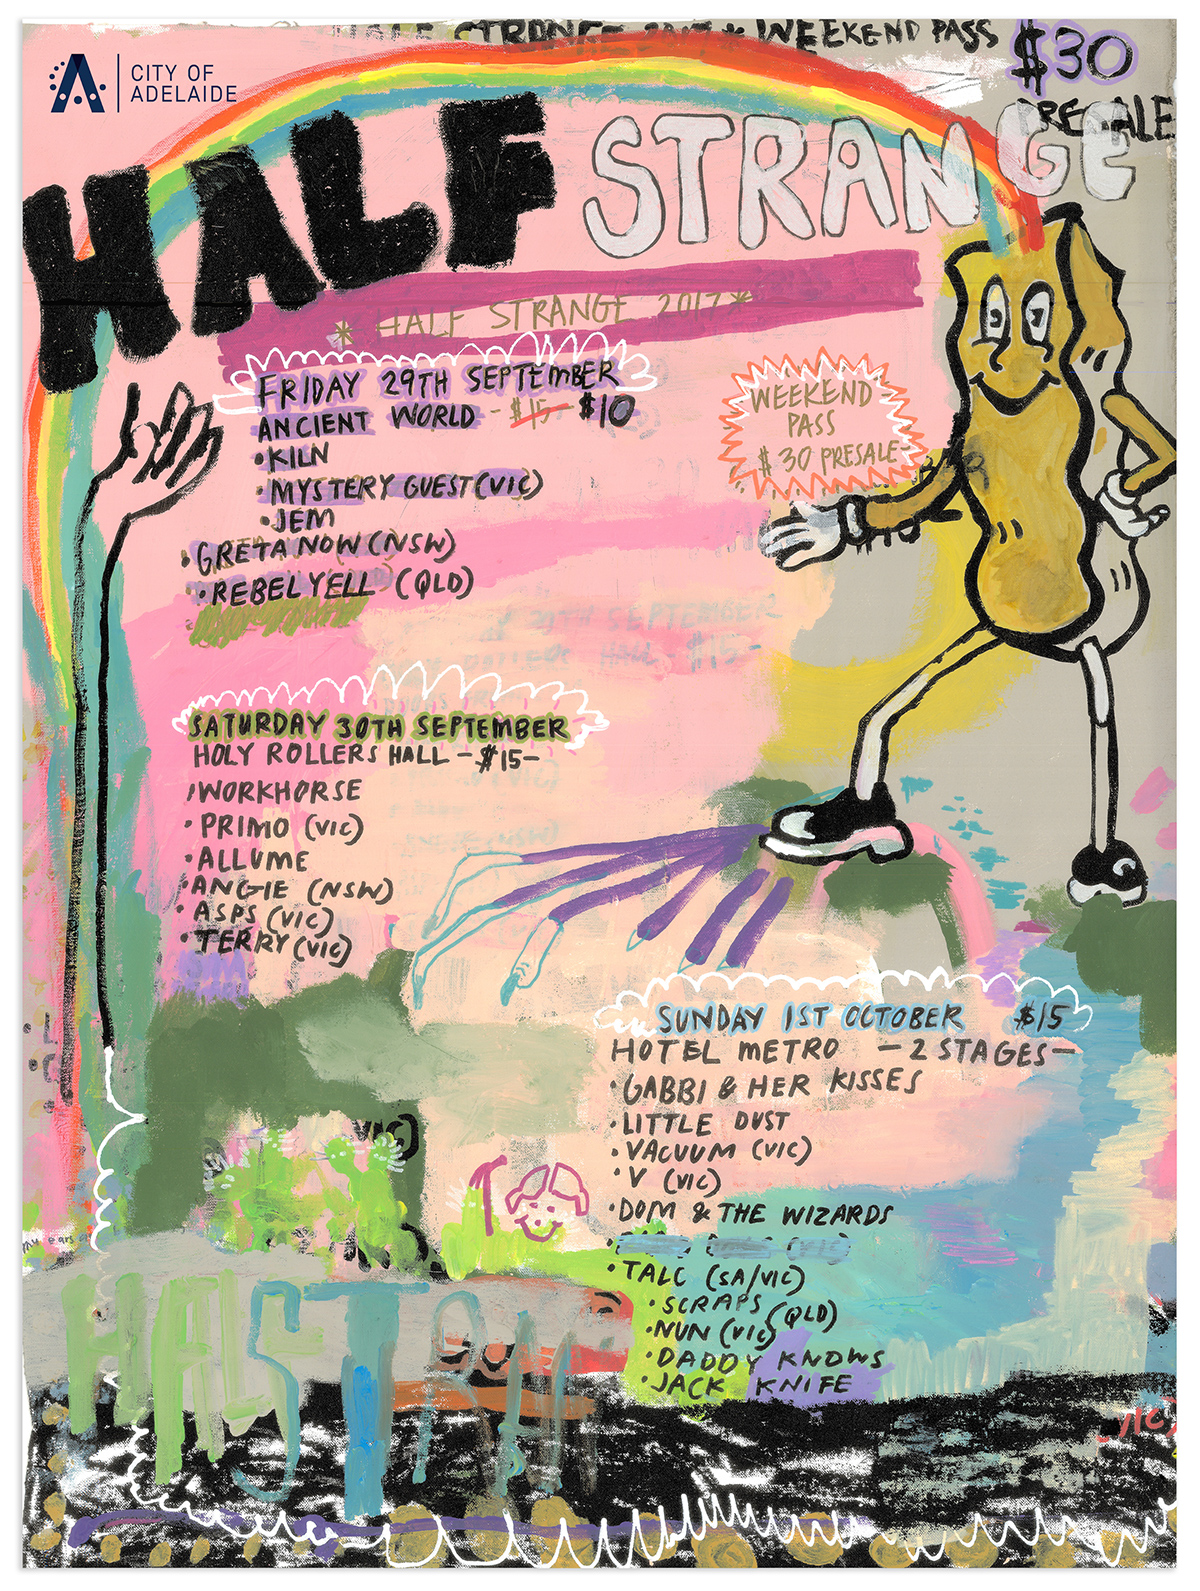 HALF STRANGE 2017 * WEEKEND PASS $30
PRESALE
CITY OF
ADELAIDE
HALF STRANGE
* HALF STRANGE 2017 *
FRIDAY 29TH SEPTEMBER
ANCIENT WORLD - $15 - $10
• KILN
• MYSTERY GUEST (VIC)
• JEM
• GRETA NOW (NSW)
• REBEL YELL (QLD)
WEEKEND
PASS
$30 PRESALE
29TH SEPTEMBER
HALL - $15 -
SATURDAY 30TH SEPTEMBER
HOLY ROLLERS HALL - $15 -
• WORKHORSE
• PRIMO (VIC)
• ALLUME
• ANGIE (NSW)
• ASPS (VIC)
• TERRY (VIC)
SUNDAY 1ST OCTOBER $15
HOTEL METRO - 2 STAGES -
• GABBI & HER KISSES
• LITTLE DUST
• VACUUM (VIC)
• V (VIC)
• DOM & THE WIZARDS
• TALC (SA/VIC)
• SCRAPS (QLD)
• NUN (VIC)
• DADDY KNOWS
• JACK KNIFE
VIC)
my ears